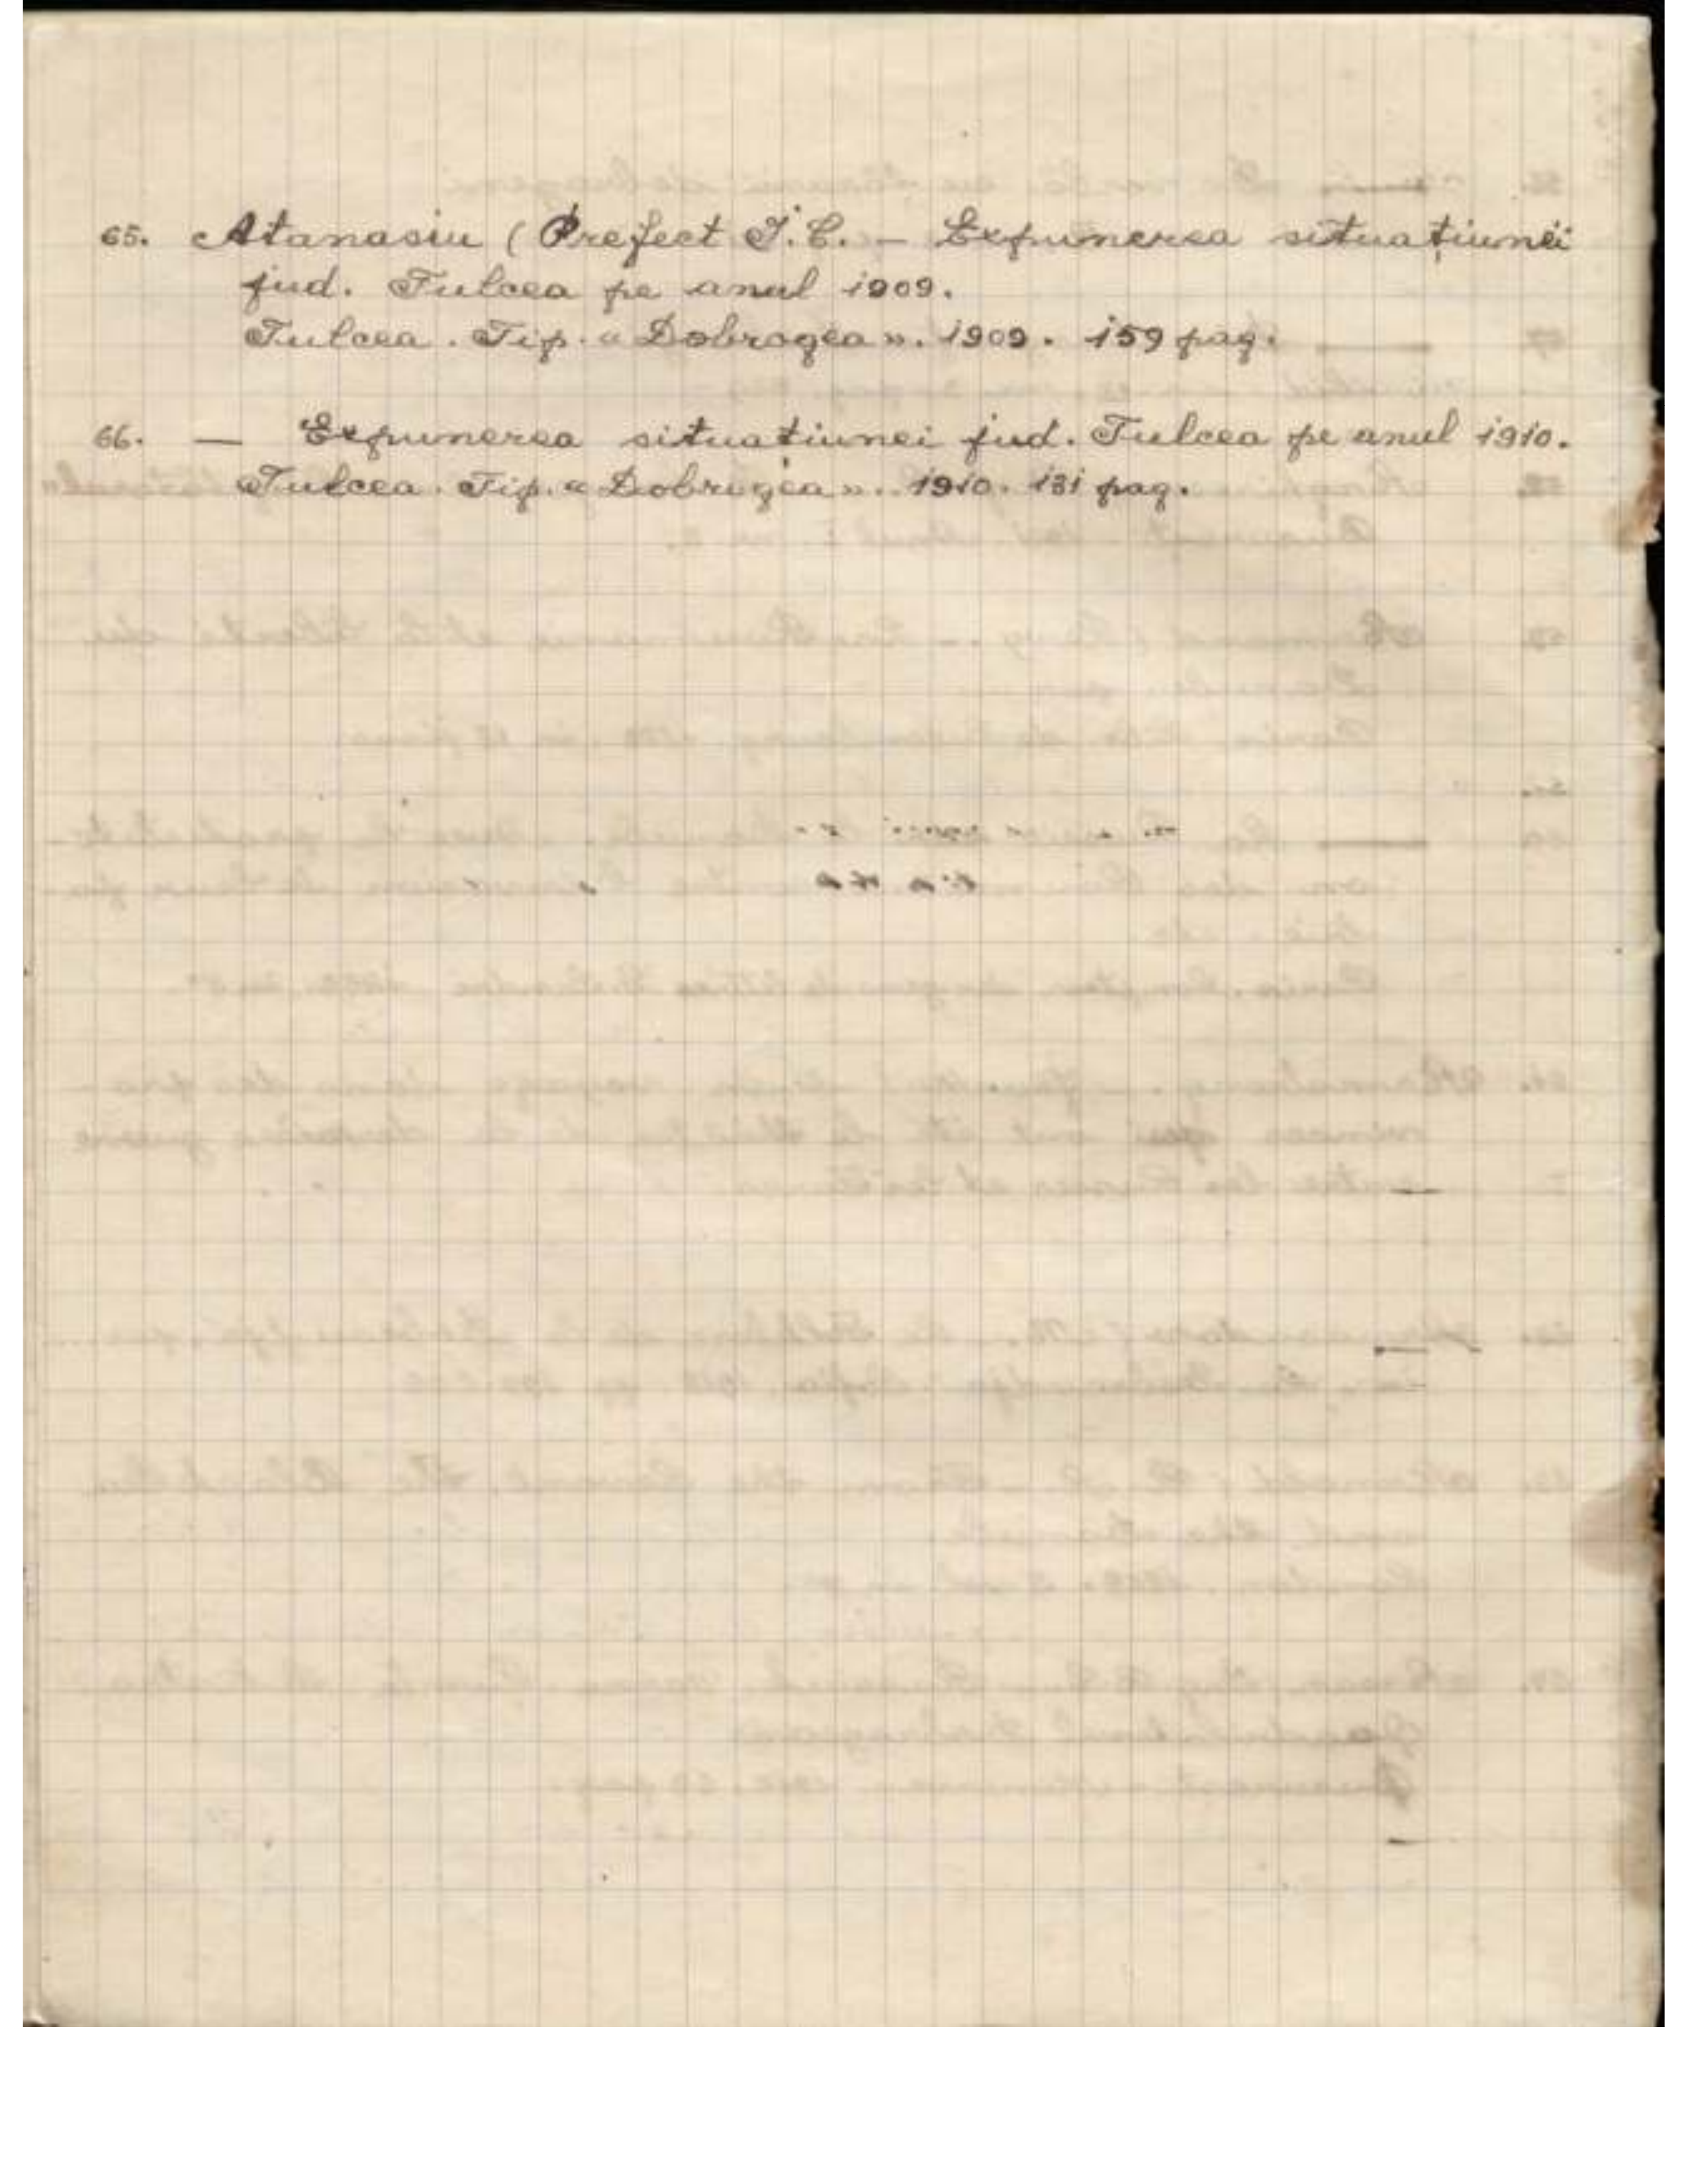 65. Atanasiu (Prefect I. C. — Expunerea situațiunei
jud. Tulcea pe anul 1909.
Tulcea. Tip. «Dobrogea». 1909. 159 pag.
66. — Expunerea situațiunei jud. Tulcea pe anul 1910.
Tulcea. Tip. «Dobrogea». 1910. 131 pag.